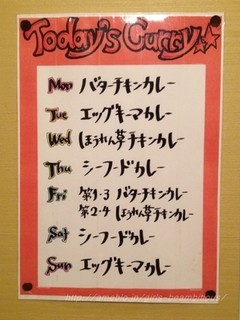 Today's Curry☆☆
Mon バターチキンカレー
Tue エッグキーマカレー
Wed ほうれん草チキンカレー
Thu シーフードカレー
Fri 第1・3 バターチキンカレー
第2・4 ほうれん草チキンカレー
Sat シーフードカレー
Sun エッグキーマカレー